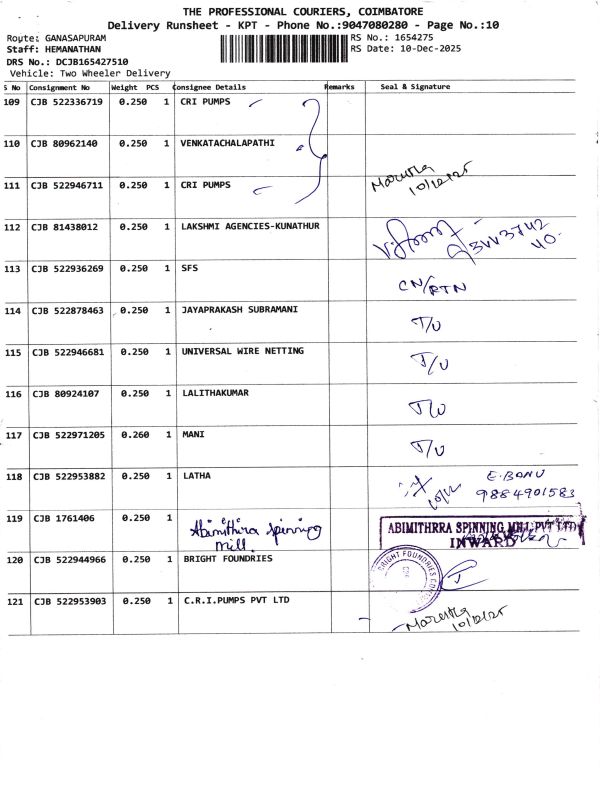 THE PROFESSIONAL COURIERS, COIMBATORE
Delivery Runsheet - KPT - Phone No.:9047080280 - Page No.:10
Route: GANASAPURAM RS No.: 1654275
Staff: HEMANATHAN RS Date: 10-Dec-2025
DRS No.: DCJB165427510
Vehicle: Two Wheeler Delivery
S No Consignment No Weight PCS Consignee Details Remarks Seal & Signature
109 CJB 522336719 0.250 1 CRI PUMPS
110 CJB 80962140 0.250 1 VENKATACHALAPATHI
111 CJB 522946711 0.250 1 CRI PUMPS 10/12/25
112 CJB 81438012 0.250 1 LAKSHMI AGENCIES-KUNATHUR
113 CJB 522936269 0.250 1 SFS CN/RTN
114 CJB 522878463 0.250 1 JAYAPRAKASH SUBRAMANI T/U
115 CJB 522946681 0.250 1 UNIVERSAL WIRE NETTING T/U
116 CJB 80924107 0.250 1 LALITHAKUMAR T/U
117 CJB 522971205 0.260 1 MANI T/U
118 CJB 522953882 0.250 1 LATHA E.BANU
9884901583
119 CJB 1761406 0.250 1 Abimithra Spinning Mill. ABIMITHRRA SPINNING MILL PVT LTD
INWARD
120 CJB 522944966 0.250 1 BRIGHT FOUNDRIES BRIGHT FOUNDRIES
121 CJB 522953903 0.250 1 C.R.I.PUMPS PVT LTD 10/12/25